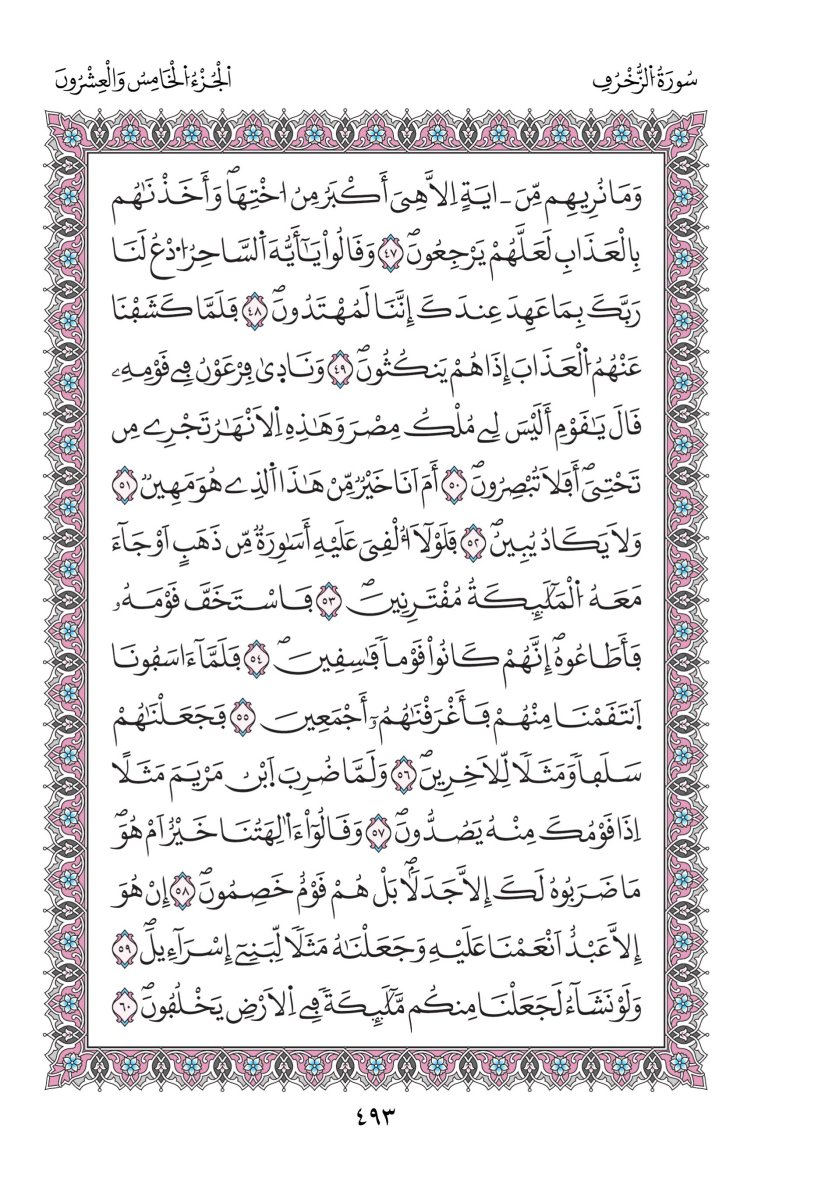 سُورَةُ الزُّخْرُفِ
الْجُزْءُ الْخَامِسُ وَالْعِشْرُونَ
وَمَا نُرِيهِم مِّنَ ـ ايَةٍ اِلاَّ هِيَ أَكْبَرُ مِنُ اخْتِهَاۖ وَأَخَذْنَٰهُم
بِالْعَذَابِ لَعَلَّهُمْ يَرْجِعُونَۖ ٤٧ وَقَالُواْ يَٰٓأَيُّهَ اَ۬لسَّاحِرُ اُ۟دْعُ لَنَا
رَبَّكَ بِمَا عَهِدَ عِندَكَ إِنَّنَا لَمُهْتَدُونَۖ ٤٨ فَلَمَّا كَشَفْنَا
عَنْهُمُ اُ۬لْعَذَابَ إِذَا هُمْ يَنكُثُونَۖ ٤٩ وَنَادٜىٰ فِرْعَوْنُ فِے قَوْمِهِۦ
قَالَ يَٰقَوْمِ أَلَيْسَ لِے مُلْكُ مِصْرَ وَهَٰذِهِ اِ۬لاَنْهَٰرُ تَجْرِے مِن
تَحْتِيَۖ أَفَلاَ تُبْصِرُونَۖ ٥٠ أَمَ اَنَا خَيْرٌ مِّنْ هَٰذَا اَ۬لذِے هُوَ مَهِينٌ ٥١
وَلاَ يَكَادُ يُبِينُۖ ٥٢ فَلَوْلَآ أُلْقِيَ عَلَيْهِ أَسَٰوِرَةٌ مِّن ذَهَبٍ اَوْ جَآءَ
مَعَهُ اُ۬لْمَلَٰٓئِكَةُ مُقْتَرِنِينَۖ ٥٣ فَاسْتَخَفَّ قَوْمَهُۥ
فَأَطَاعُوهُۖ إِنَّهُمْ كَانُواْ قَوْماٗ فَٰسِقِينَۖ ٥٤ فَلَمَّآ ءَاسَفُونَا
اَ۪نتَقَمْنَا مِنْهُمْ فَأَغْرَقْنَٰهُمُۥٓ أَجْمَعِينَ ٥٥ فَجَعَلْنَٰهُمْ
سَلَفاٗ وَمَثَلًا لِّلاَخِرِينَۖ ٥٦ وَلَمَّا ضُرِبَ اَ۪بْنُ مَرْيَمَ مَثَلًا
اِذَا قَوْمُكَ مِنْهُ يَصُدُّونَۖ ٥٧ وَقَالُوٓاْ ءَاٰلِهَتُنَا خَيْرٌ اَمْ هُوَۖ
مَا ضَرَبُوهُ لَكَ إِلاَّ جَدَلًاۖ بَلْ هُمْ قَوْمٌ خَصِمُونَۖ ٥٨ إِنْ هُوَ
إِلاَّ عَبْدٌ اَنْعَمْنَا عَلَيْهِ وَجَعَلْنَٰهُ مَثَلًا لِّبَنِےٓ إِسْرَآءِيلَۖ ٥٩
وَلَوْ نَشَآءُ لَجَعَلْنَا مِنكُم مَّلَٰٓئِكَةً فِے اِ۬لاَرْضِ يَخْلُفُونَۖ ٦٠
٤٩٣